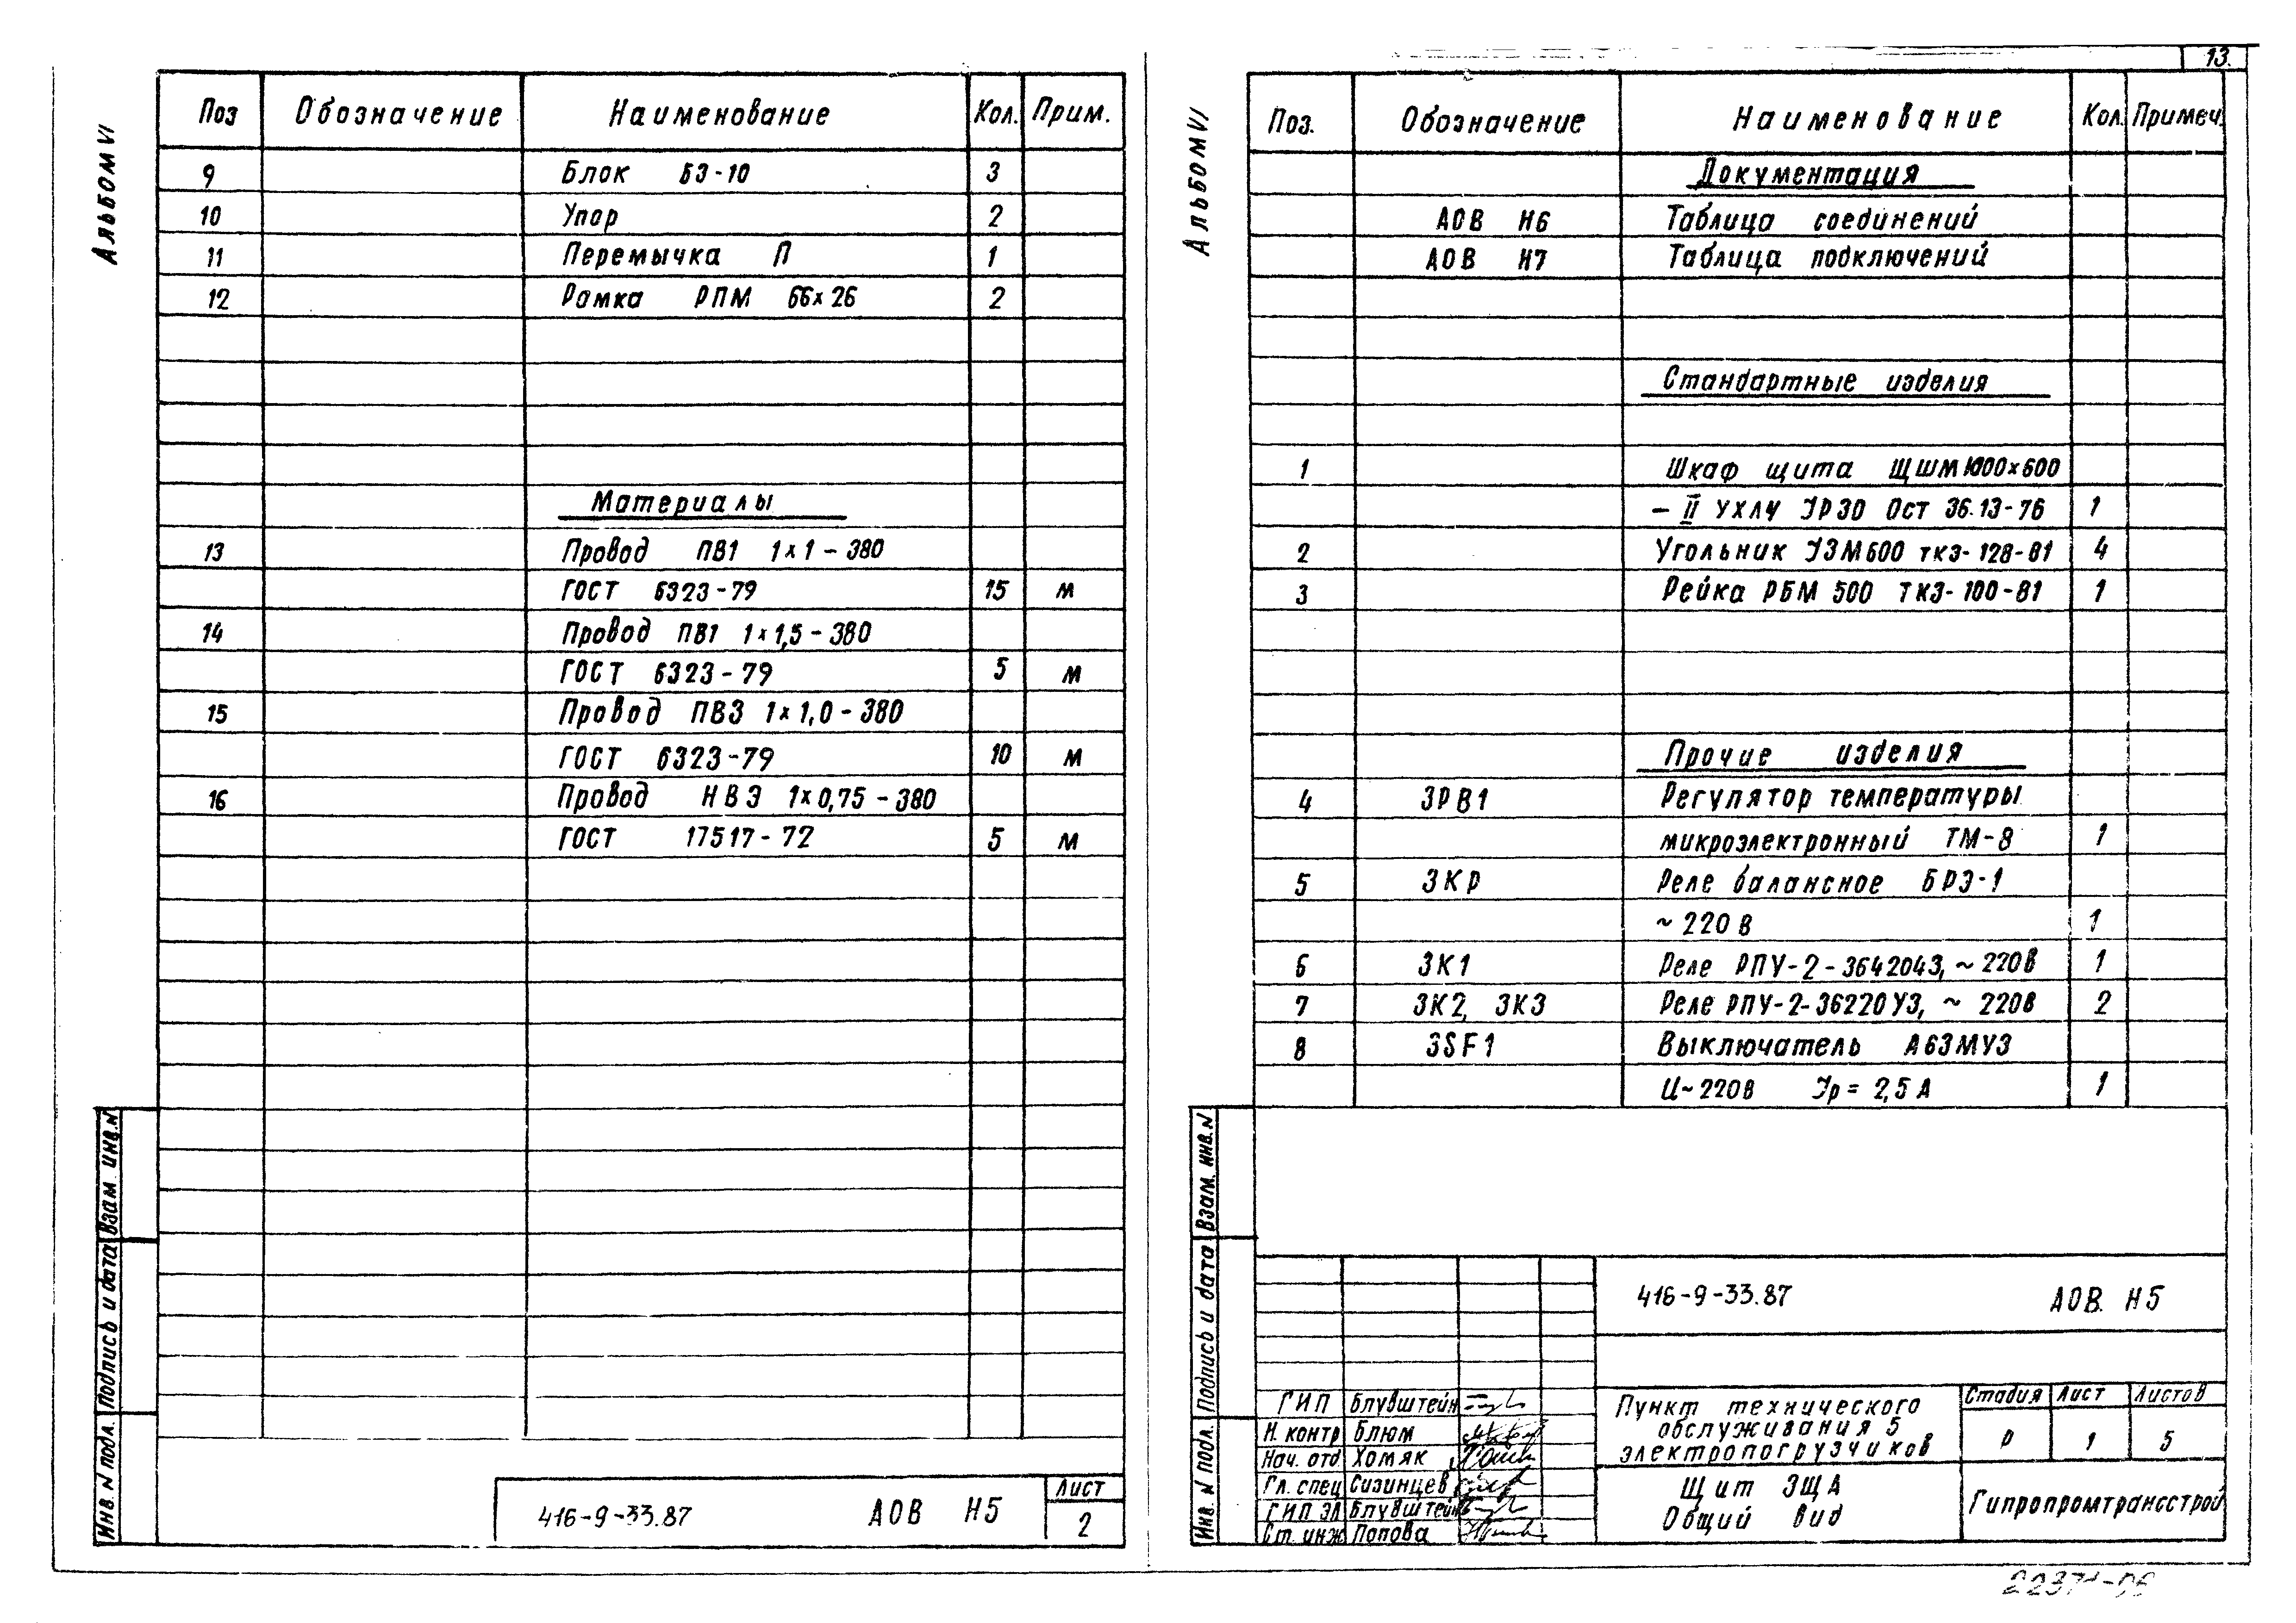 13.
Альбом VI
Поз Обозначение Наименование Кол. Прим.
9 Блок БЗ-10 3
10 Упор 2
11 Перемычка П 1
12 Рамка РПМ 66х26 2
Материалы
13 Провод ПВ1 1х1-380
ГОСТ 6323-79 15 м
14 Провод ПВ1 1х1,5-380
ГОСТ 6323-79 5 м
15 Провод ПВ3 1х1,0-380
ГОСТ 6323-79 10 м
16 Провод НВЭ 1х0,75-380
ГОСТ 17517-72 5 м
Инв. № подл. Подпись и дата Взам. инв. №
416-9-33.87 АОВ Н5 Лист
2
Альбом VI
Поз. Обозначение Наименование Кол. Примеч.
Документация
АОВ Н6 Таблица соединений
АОВ Н7 Таблица подключений
Стандартные изделия
1 Шкаф щита ЩШМ 1000х600
- II УХЛ4 IР30 Ост 36.13-76 1
2 Угольник УЗМ600 ткз-128-81 4
3 Рейка РБМ 500 ТКЗ-100-81 1
Прочие изделия
4 3РВ1 Регулятор температуры
микроэлектронный ТМ-8 1
5 3КР Реле балансное БРЭ-1
~220 В 1
6 3К1 Реле РПУ-2-36420У3, ~220В 1
7 3К2, 3К3 Реле РПУ-2-36220У3, ~ 220В 2
8 3SF1 Выключатель А63МУ3
U~220В Iр = 2,5 А 1
Инв. № подл. Подпись и дата Взам. инв. №
416-9-33.87 АОВ. Н5
ГИП Блувштейн
Н. контр Блюм
Нач. отд Хомяк
Гл. спец Сизинцев
ГИП ЭЛ Блувштейн
Ст. инж Попова
Пункт технического
обслуживания 5
электропогрузчиков
Стадия Лист Листов
Р 1 5
Щит 3ЩА
Общий вид
Гипропромтрансстрой